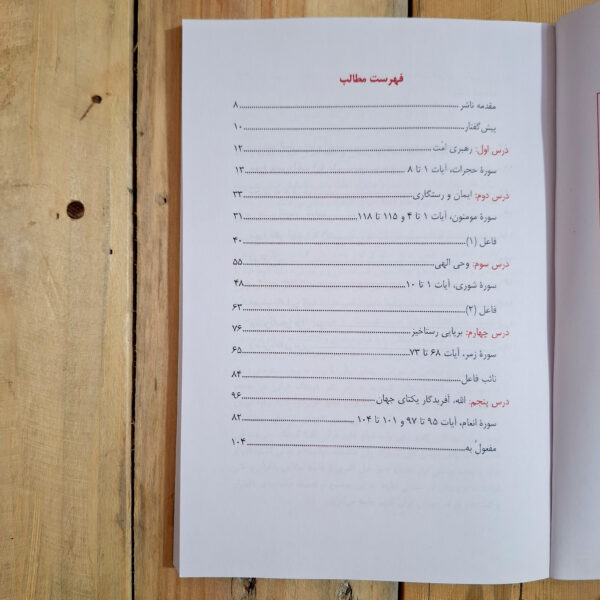 فهرست مطالب
مقدمه ناشر ........ ۸
پیش‌گفتار ........ ۱۰
درس اول: رهبری امّت ........ ۱۲
سورۀ حجرات، آیات ۱ تا ۸ ........ ۱۳
درس دوم: ایمان و رستگاری ........ ۳۳
سورۀ مومنون، آیات ۱ تا ۴ و ۱۱۵ تا ۱۱۸ ........ ۳۱
فاعل (۱) ........ ۴۰
درس سوم: وحی الهی ........ ۵۵
سورۀ شوری، آیات ۱ تا ۱۰ ........ ۴۸
فاعل (۲) ........ ۶۳
درس چهارم: برپایی رستاخیز ........ ۷۶
سورۀ زمر، آیات ۶۸ تا ۷۳ ........ ۶۵
نائب فاعل ........ ۸۴
درس پنجم: الله، آفریدگار یکتای جهان ........ ۹۶
سورۀ انعام، آیات ۹۵ تا ۹۷ و ۱۰۱ تا ۱۰۴ ........ ۸۲
مفعولٌ به ........ ۱۰۴